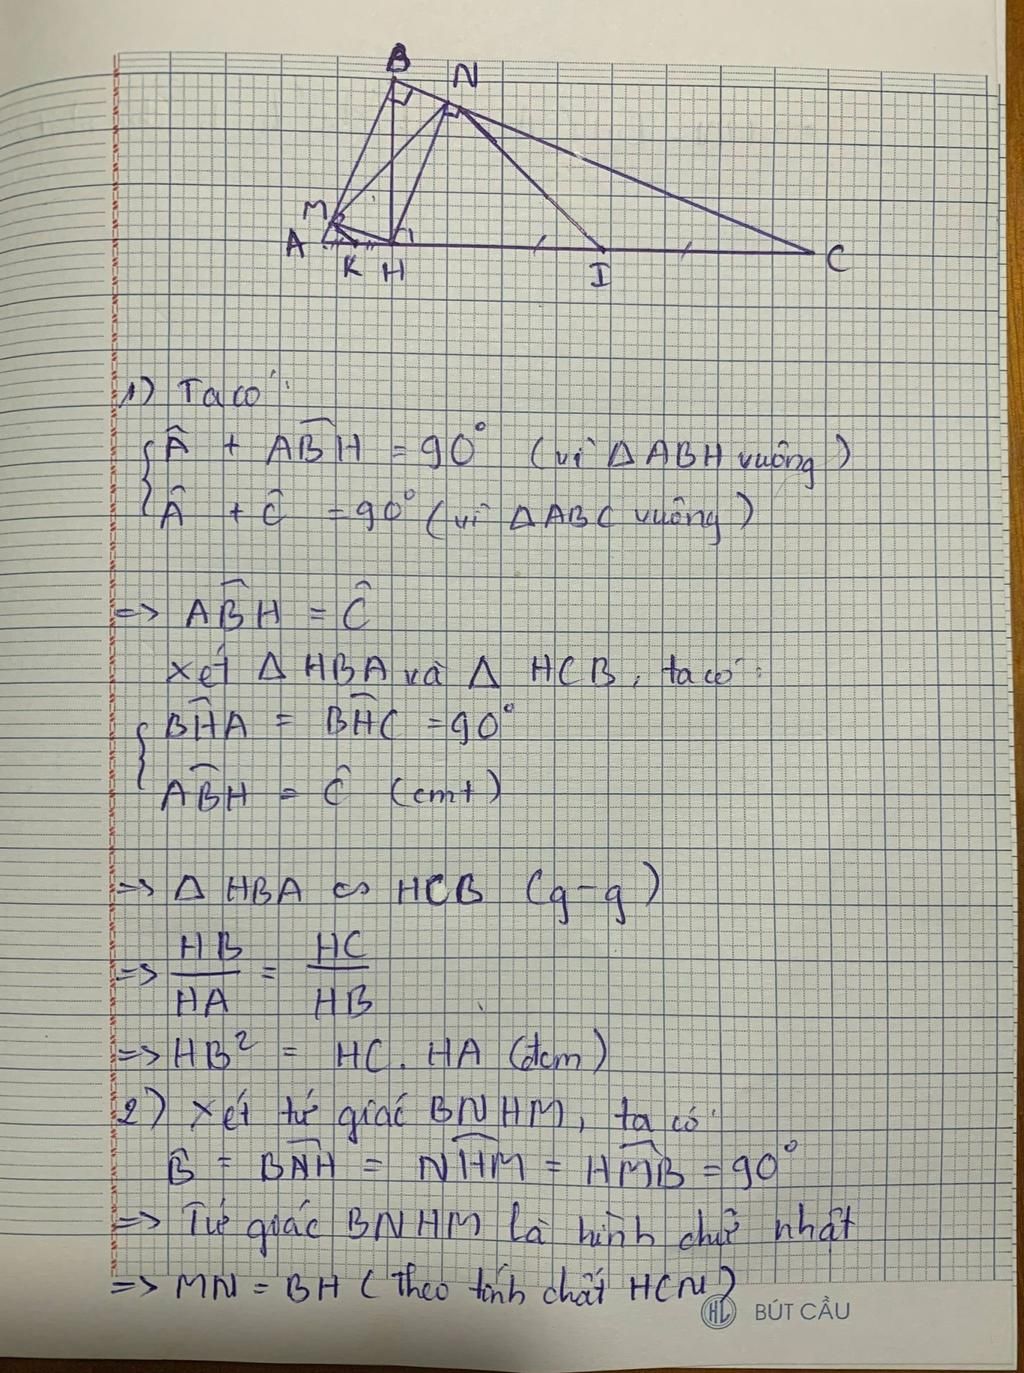 B
N
M
A
K H
I
C
1) Ta có:
Â + ABH = 90° (vì Δ ABH vuông)
Â + Ĉ = 90° (vì Δ ABC vuông)
=> ABH = Ĉ
xét Δ HBA và Δ HCB, ta có:
BHA = BHC = 90°
ABH = Ĉ (cmt)
=> Δ HBA ∽ HCB (g-g)
=> HB/HA = HC/HB
=> HB² = HC. HA (đcm)
2) xét tứ giác BNHM, ta có:
B̂ = BNH = NHM = HMB = 90°
=> Tứ giác BNHM là hình chữ nhật
=> MN = BH (theo tính chất HCN)
HL BÚT CẦU